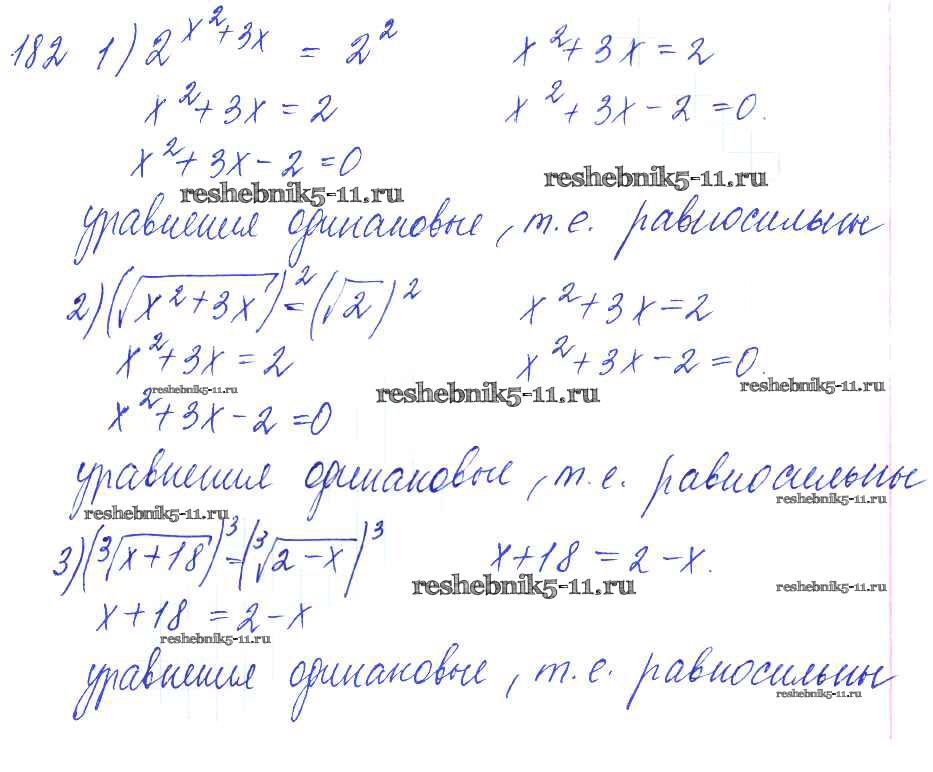 182 1) 2^{x²+3x} = 2² x²+3x=2
x²+3x=2 x²+3x-2=0.
x²+3x-2=0
reshebnik5-11.ru reshebnik5-11.ru
уравнения одинаковые, т.е. равносильны
2) (√(x²+3x))² = (√2)² x²+3x=2
x²+3x=2 x²+3x-2=0.
reshebnik5-11.ru reshebnik5-11.ru reshebnik5-11.ru
x²+3x-2=0
уравнения одинаковые, т.е. равносильны
reshebnik5-11.ru reshebnik5-11.ru
3) (∛(x+18))³ = (∛(2-x))³ x+18=2-x.
reshebnik5-11.ru reshebnik5-11.ru
x+18=2-x
reshebnik5-11.ru
уравнения одинаковые, т.е. равносильны
reshebnik5-11.ru